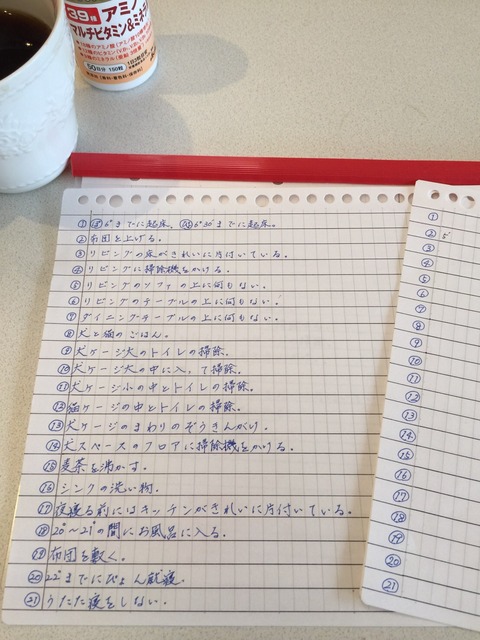 39種 アミノ
マルチビタミン&ミネラル
50日分 150粒
① 6°までに起床、 6°30'までに起床。
② 布団を上げる。
③ リビングの床がきれいに片付いている。
④ リビングに掃除機をかける。
⑤ リビングのソファの上に何もない。
⑥ リビングのテーブルの上に何もない。
⑦ ダイニングテーブルの上に何もない。
⑧ 犬と猫のごはん。
⑨ 犬ケージ大のトイレの掃除。
⑩ 犬ケージ大の中に入って掃除。
⑪ 犬ケージ小の中とトイレの掃除。
⑫ 猫ケージの中とトイレの掃除。
⑬ 犬ケージのまわりのぞうきんがけ。
⑭ 犬スペースのフロアに掃除機をかける。
⑮ 麦茶を沸かす。
⑯ シンクの洗い物。
⑰ 夜寝る前にはキッチンがきれいに片付いている。
⑱ 20°~21°の間にお風呂に入る。
⑲ 布団を敷く。
⑳ 22°までにぴょん就寝。
㉑ うたた寝をしない。
①
②
③
④
⑤
⑥
⑦
⑧
⑨
⑩
⑪
⑫
⑬
⑭
⑮
⑯
⑰
⑱
⑲
⑳
㉑